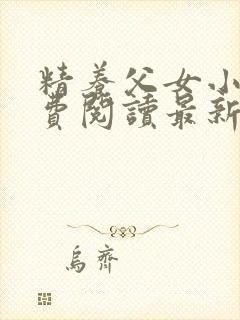 精養父女小
費閱讀最新
烏齊